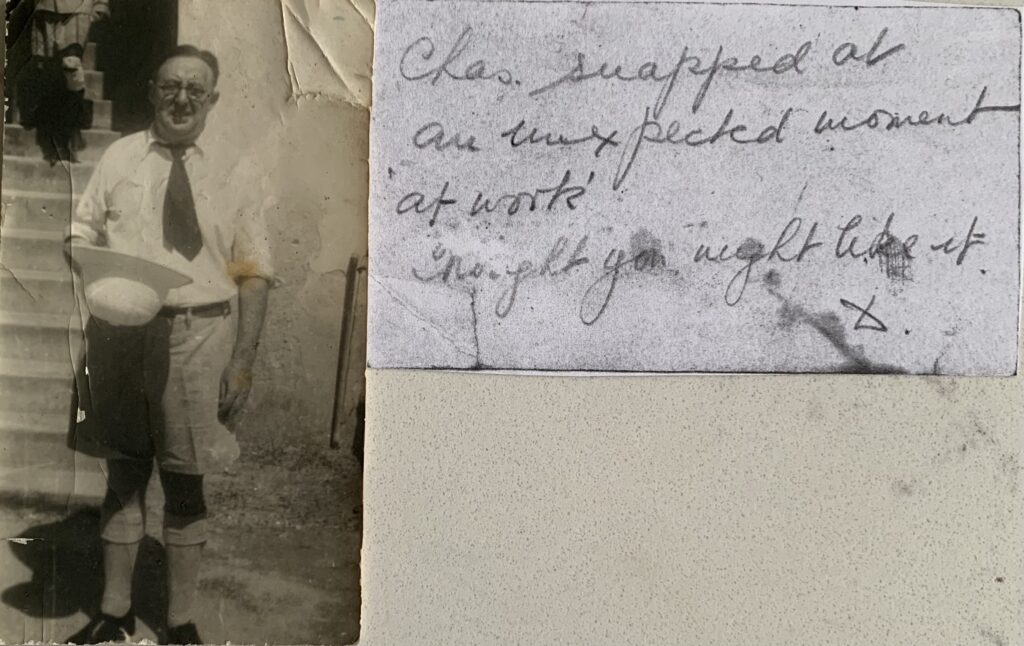 Chas. snapped at
an unexpected moment
'at work'
Thought you might like it.
X.